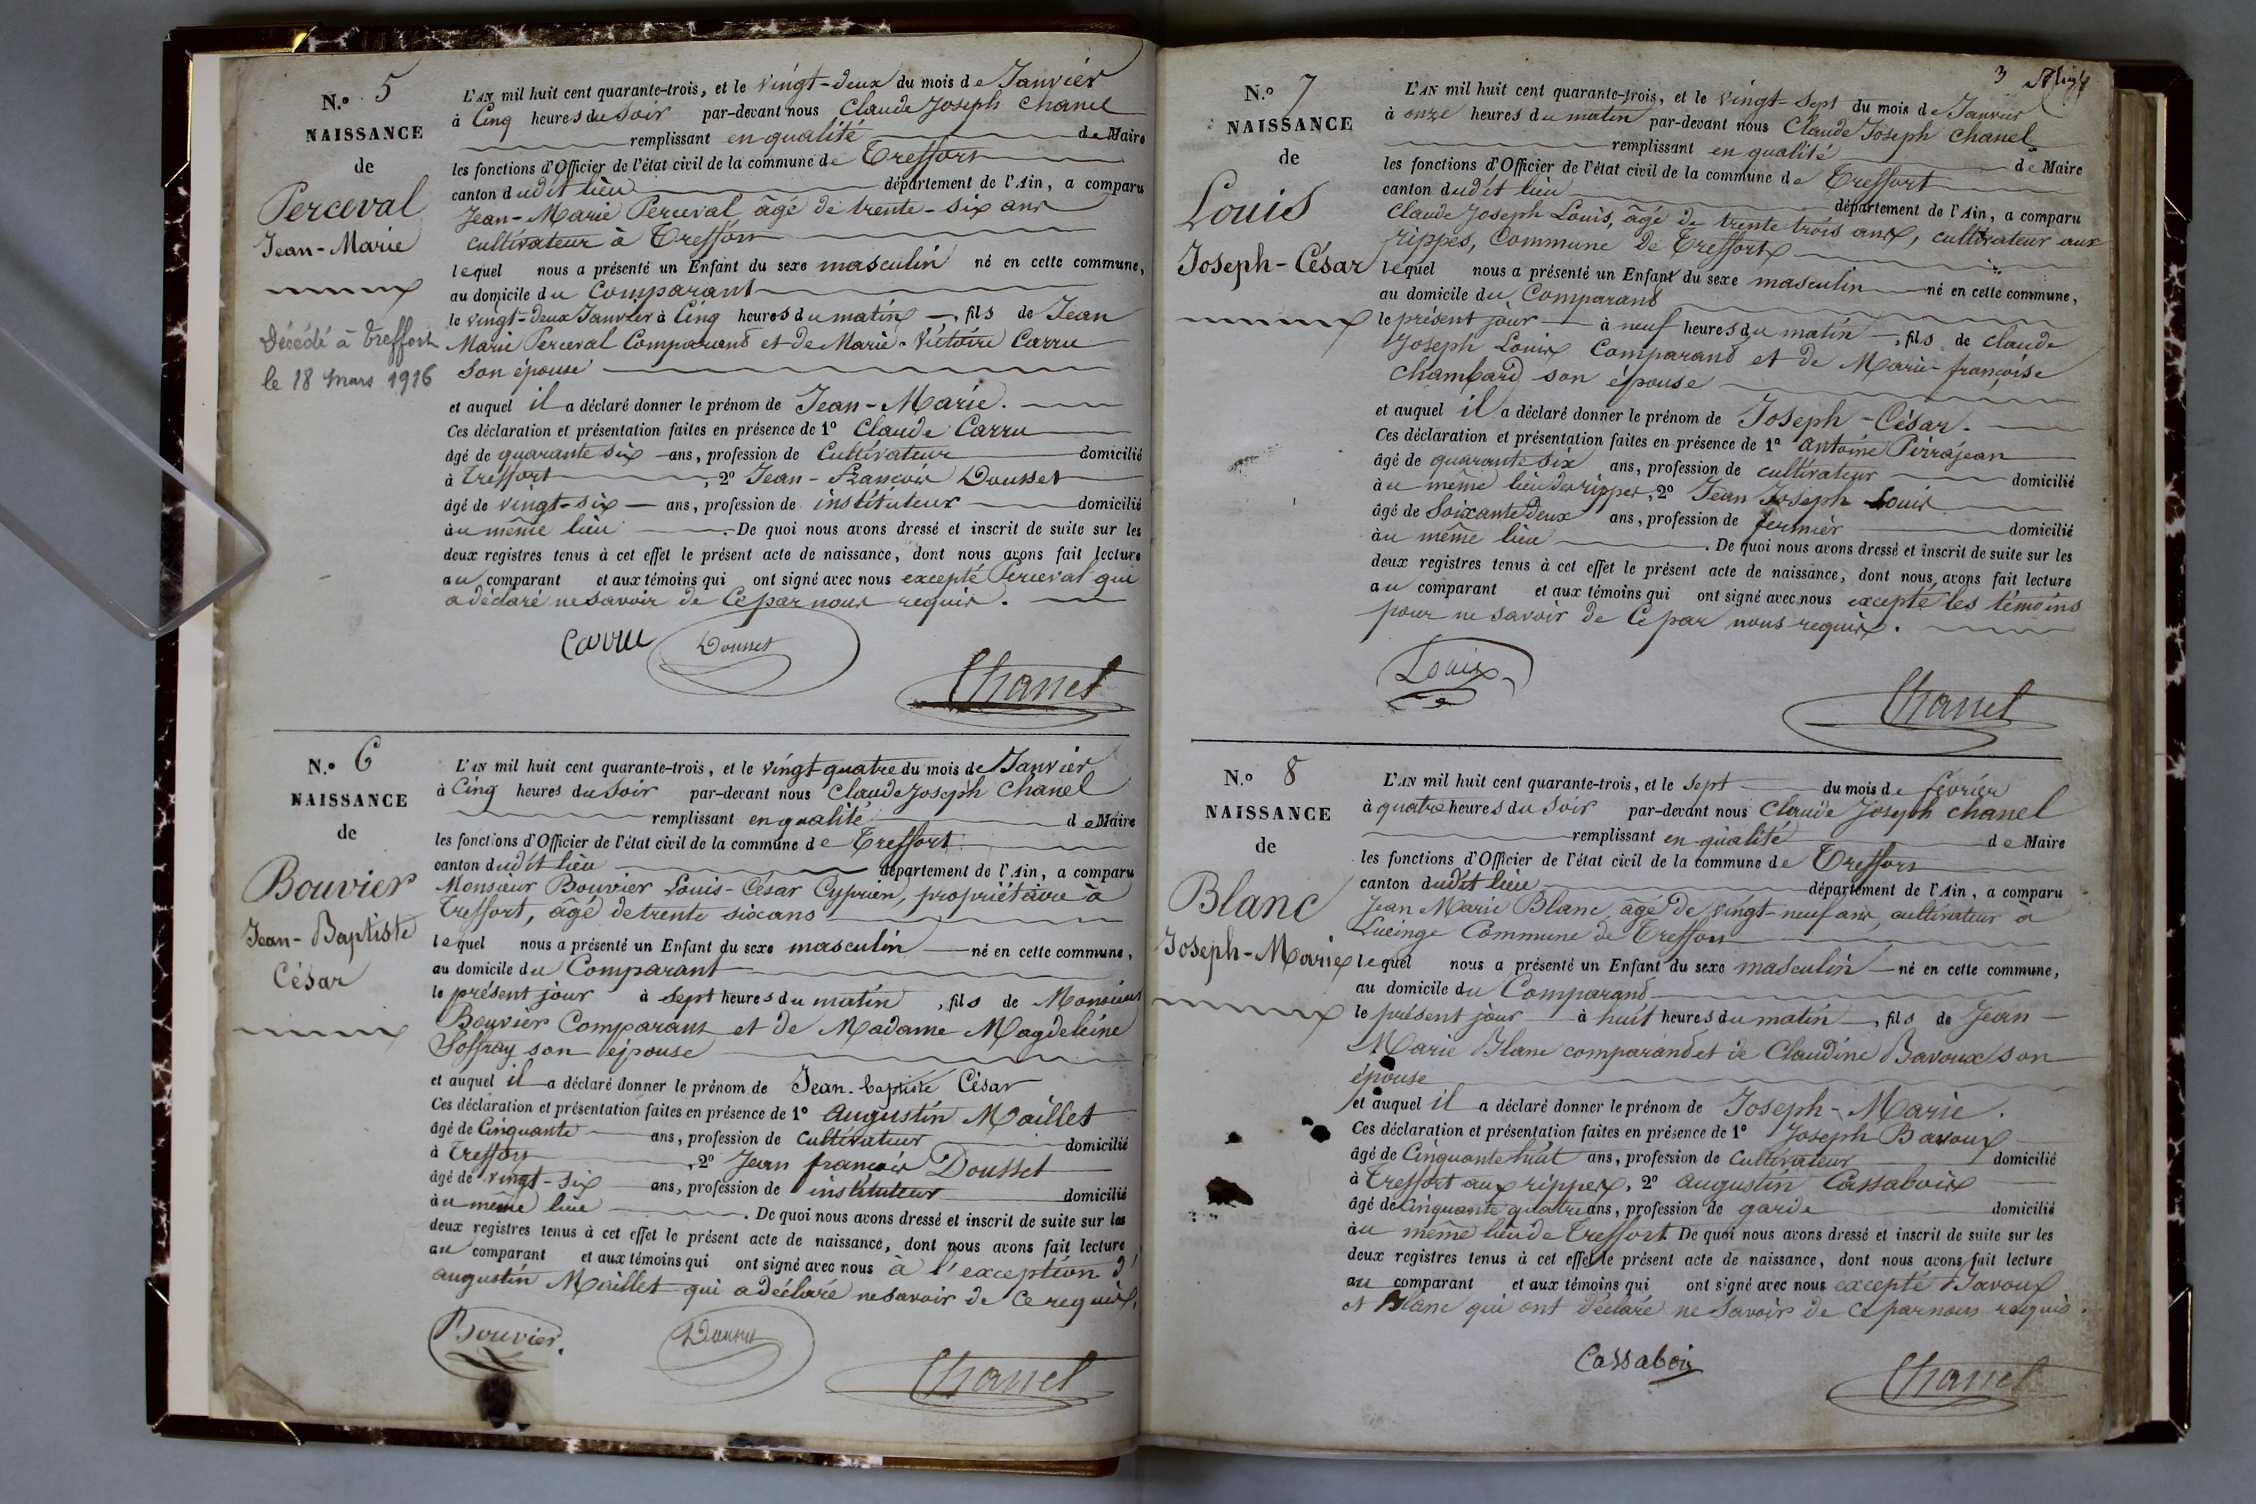 N.º 5
NAISSANCE
de
Perceval
Jean-Marie
Décédé à Treffort
le 18 mars 1916
L'AN mil huit cent quarante-trois, et le vingt-deux du mois de Janvier
à Cinq heures du Soir par-devant nous Claude Joseph Chanel
remplissant en qualité de Maire
les fonctions d'Officier de l'état civil de la commune de Treffort
canton dudit lieu département de l'Ain, a comparu
Jean-Marie Perceval, âgé de trente-six ans
cultivateur à Treffort
lequel nous a présenté un Enfant du sexe masculin né en cette commune,
au domicile du Comparant
le vingt-deux Janvier à Cinq heures du matin, fils de Jean
Marie Perceval Comparand et de Marie-Victoire Carru
son épouse
et auquel il a déclaré donner le prénom de Jean-Marie.
Ces déclaration et présentation faites en présence de 1º Claude Carru
âgé de quarante six ans, profession de Cultivateur domicilié
à Treffort, 2º Jean-François Dousset
âgé de vingt-six ans, profession de instituteur domicilié
au même lieu. De quoi nous avons dressé et inscrit de suite sur les
deux registres tenus à cet effet le présent acte de naissance, dont nous avons fait lecture
au comparant et aux témoins qui ont signé avec nous excepté Perceval qui
a déclaré ne savoir de Ce par nous requis.
Carru Dousset
Chanel
N.º 6
NAISSANCE
de
Bouvier
Jean-Baptiste
César
L'AN mil huit cent quarante-trois, et le vingt-quatre du mois de Janvier
à Cinq heures du Soir par-devant nous Claude Joseph Chanel
remplissant en qualité de Maire
les fonctions d'Officier de l'état civil de la commune de Treffort
canton dudit lieu département de l'Ain, a comparu
Monsieur Bouvier Louis-César Cyprien, propriétaire à
Treffort, âgé de trente six ans
lequel nous a présenté un Enfant du sexe masculin né en cette commune,
au domicile du Comparant
le présent jour à sept heures du matin, fils de Monsieur
Bouvier Comparant et de Madame Magdeleine
Soffray son épouse
et auquel il a déclaré donner le prénom de Jean-baptiste César
Ces déclaration et présentation faites en présence de 1º Augustin Maillet
âgé de Cinquante ans, profession de Cultivateur domicilié
à Treffort, 2º Jean françois Dousset
âgé de vingt-six ans, profession de instituteur domicilié
au même lieu. De quoi nous avons dressé et inscrit de suite sur les
deux registres tenus à cet effet le présent acte de naissance, dont nous avons fait lecture
au comparant et aux témoins qui ont signé avec nous à l'exception d'
augustin Maillet qui a déclaré ne savoir de Ce requis.
Bouvier. Dousset
Chanel
3
N.º 7
NAISSANCE
de
Louis
Joseph-César
L'AN mil huit cent quarante-trois, et le vingt-sept du mois de Janvier
à onze heures du matin par-devant nous Claude Joseph Chanel
remplissant en qualité de Maire
les fonctions d'Officier de l'état civil de la commune de Treffort
canton dudit lieu département de l'Ain, a comparu
Claude Joseph Louis, âgé de trente trois ans, cultivateur aux
rippes, Commune de Treffort
lequel nous a présenté un Enfant du sexe masculin né en cette commune,
au domicile du Comparand
le présent jour à neuf heures du matin, fils de Claude
Joseph Louis Comparand et de Marie-françoise
Chambard son épouse
et auquel il a déclaré donner le prénom de Joseph-César.
Ces déclaration et présentation faites en présence de 1º antoine Pirrajean
âgé de quarante six ans, profession de cultivateur domicilié
au même lieu des rippes, 2º Jean Joseph Louis
âgé de Soixante Deux ans, profession de fermier domicilié
au même lieu. De quoi nous avons dressé et inscrit de suite sur les
deux registres tenus à cet effet le présent acte de naissance, dont nous avons fait lecture
au comparant et aux témoins qui ont signé avec nous excepté les témoins
pour ne savoir de Ce par nous requis.
Louis
Chanel
N.º 8
NAISSANCE
de
Blanc
Joseph-Marie
L'AN mil huit cent quarante-trois, et le Sept du mois de février
à quatre heures du Soir par-devant nous Claude Joseph chanel
remplissant en qualité de Maire
les fonctions d'Officier de l'état civil de la commune de Treffort
canton dudit lieu département de l'Ain, a comparu
Jean Marie Blanc, âgé de vingt-neuf ans, cultivateur à
Lucinge Commune de Treffort
lequel nous a présenté un Enfant du sexe masculin né en cette commune,
au domicile du Comparand
le présent jour à huit heures du matin, fils de Jean-
Marie Blanc comparand et de Claudine Bavoux son
épouse
et auquel il a déclaré donner le prénom de Joseph-Marie.
Ces déclaration et présentation faites en présence de 1º Joseph Bavoux
âgé de Cinquante huit ans, profession de Cultivateur domicilié
à Treffort aux rippes, 2º augustin Cassabois
âgé de Cinquante quatre ans, profession de garde domicilié
au même lieu de Treffort. De quoi nous avons dressé et inscrit de suite sur les
deux registres tenus à cet effet le présent acte de naissance, dont nous avons fait lecture
au comparant et aux témoins qui ont signé avec nous excepté Bavoux
et Blanc qui ont déclaré ne savoir de ce par nous requis.
Cassabois
Chanel